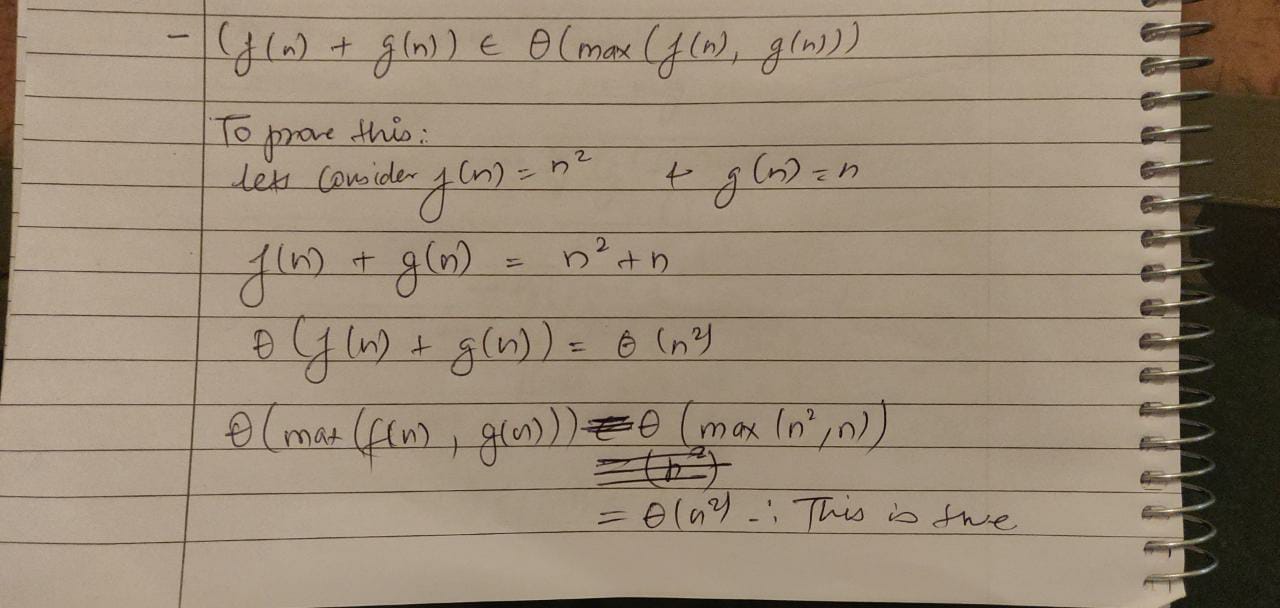 - (f(n) + g(n)) ∈ θ(max(f(n), g(n)))
To prove this:
lets Consider f(n) = n² + g(n) = n
f(n) + g(n) = n² + n
θ(f(n) + g(n)) = θ(n²)
θ(max(f(n), g(n))) = θ(max(n², n))
= (n²)
= θ(n²) ∴ This is true